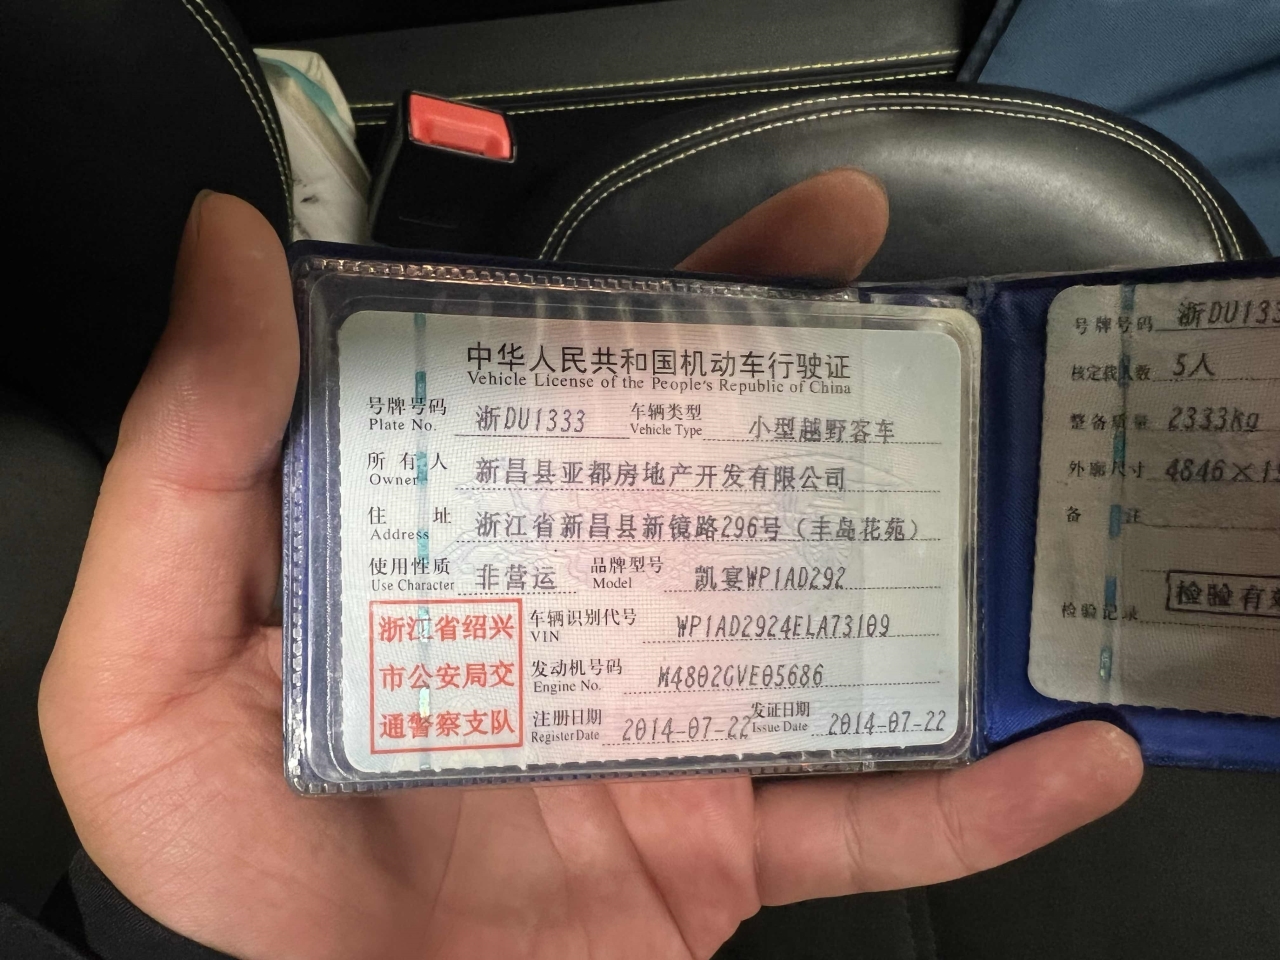 中华人民共和国机动车行驶证
Vehicle License of the People's Republic of China
号牌号码 浙DU1333 车辆类型 小型越野客车
Plate No. Vehicle Type
所有人 新昌县亚都房地产开发有限公司
Owner
住址 浙江省新昌县新镜路296号（丰岛花苑）
Address
使用性质 非营运 品牌型号 凯宴WP1AD292
Use Character Model
浙江省绍兴
市公安局交
通警察支队
车辆识别代号 WP1AD2924ELA73109
VIN
发动机号码 M4802GVE05686
Engine No.
注册日期 2014-07-22 发证日期 2014-07-22
Register Date Issue Date
号牌号码 浙DU133
核定载人数 5人
整备质量 2333kg
外廓尺寸 4846×19
备注
检验记录 检验有效